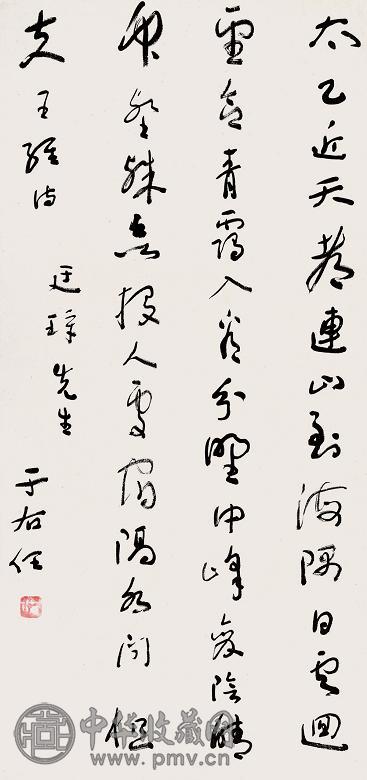 太乙近天都連山到海隅白雲迴
望合青靄入看分野中峰變陰晴
眾壑殊欲投人處宿隔水問樵
夫 王維詩
廷璋先生
于右任
中华收藏网
www.pmv.cn